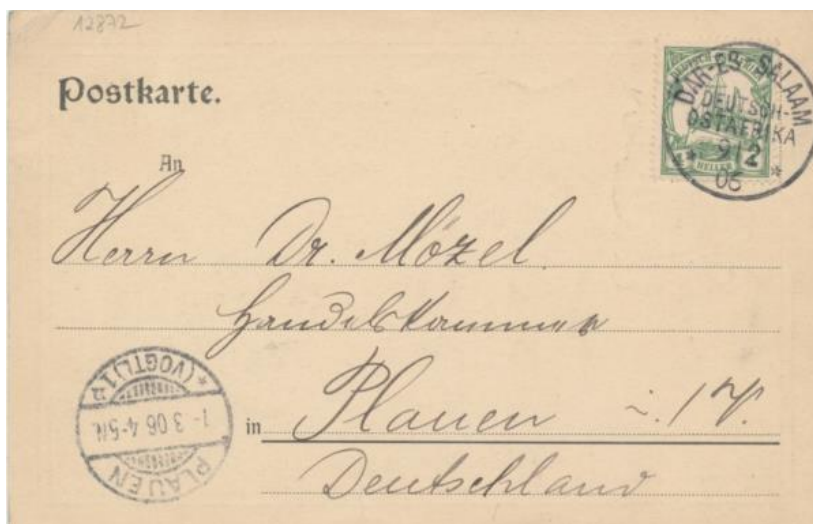 12872
Postkarte.
DAR-ES-SALAAM
DEUTSCH-
OSTAFRIKA
9/2
06
HELLER
An
Herrn Dr. Mözel.
Handelskammer
in Plauen i. / V.
Deutschland
PLAUEN
1-3 06 4-5N.
* (VOGTL) 1 a